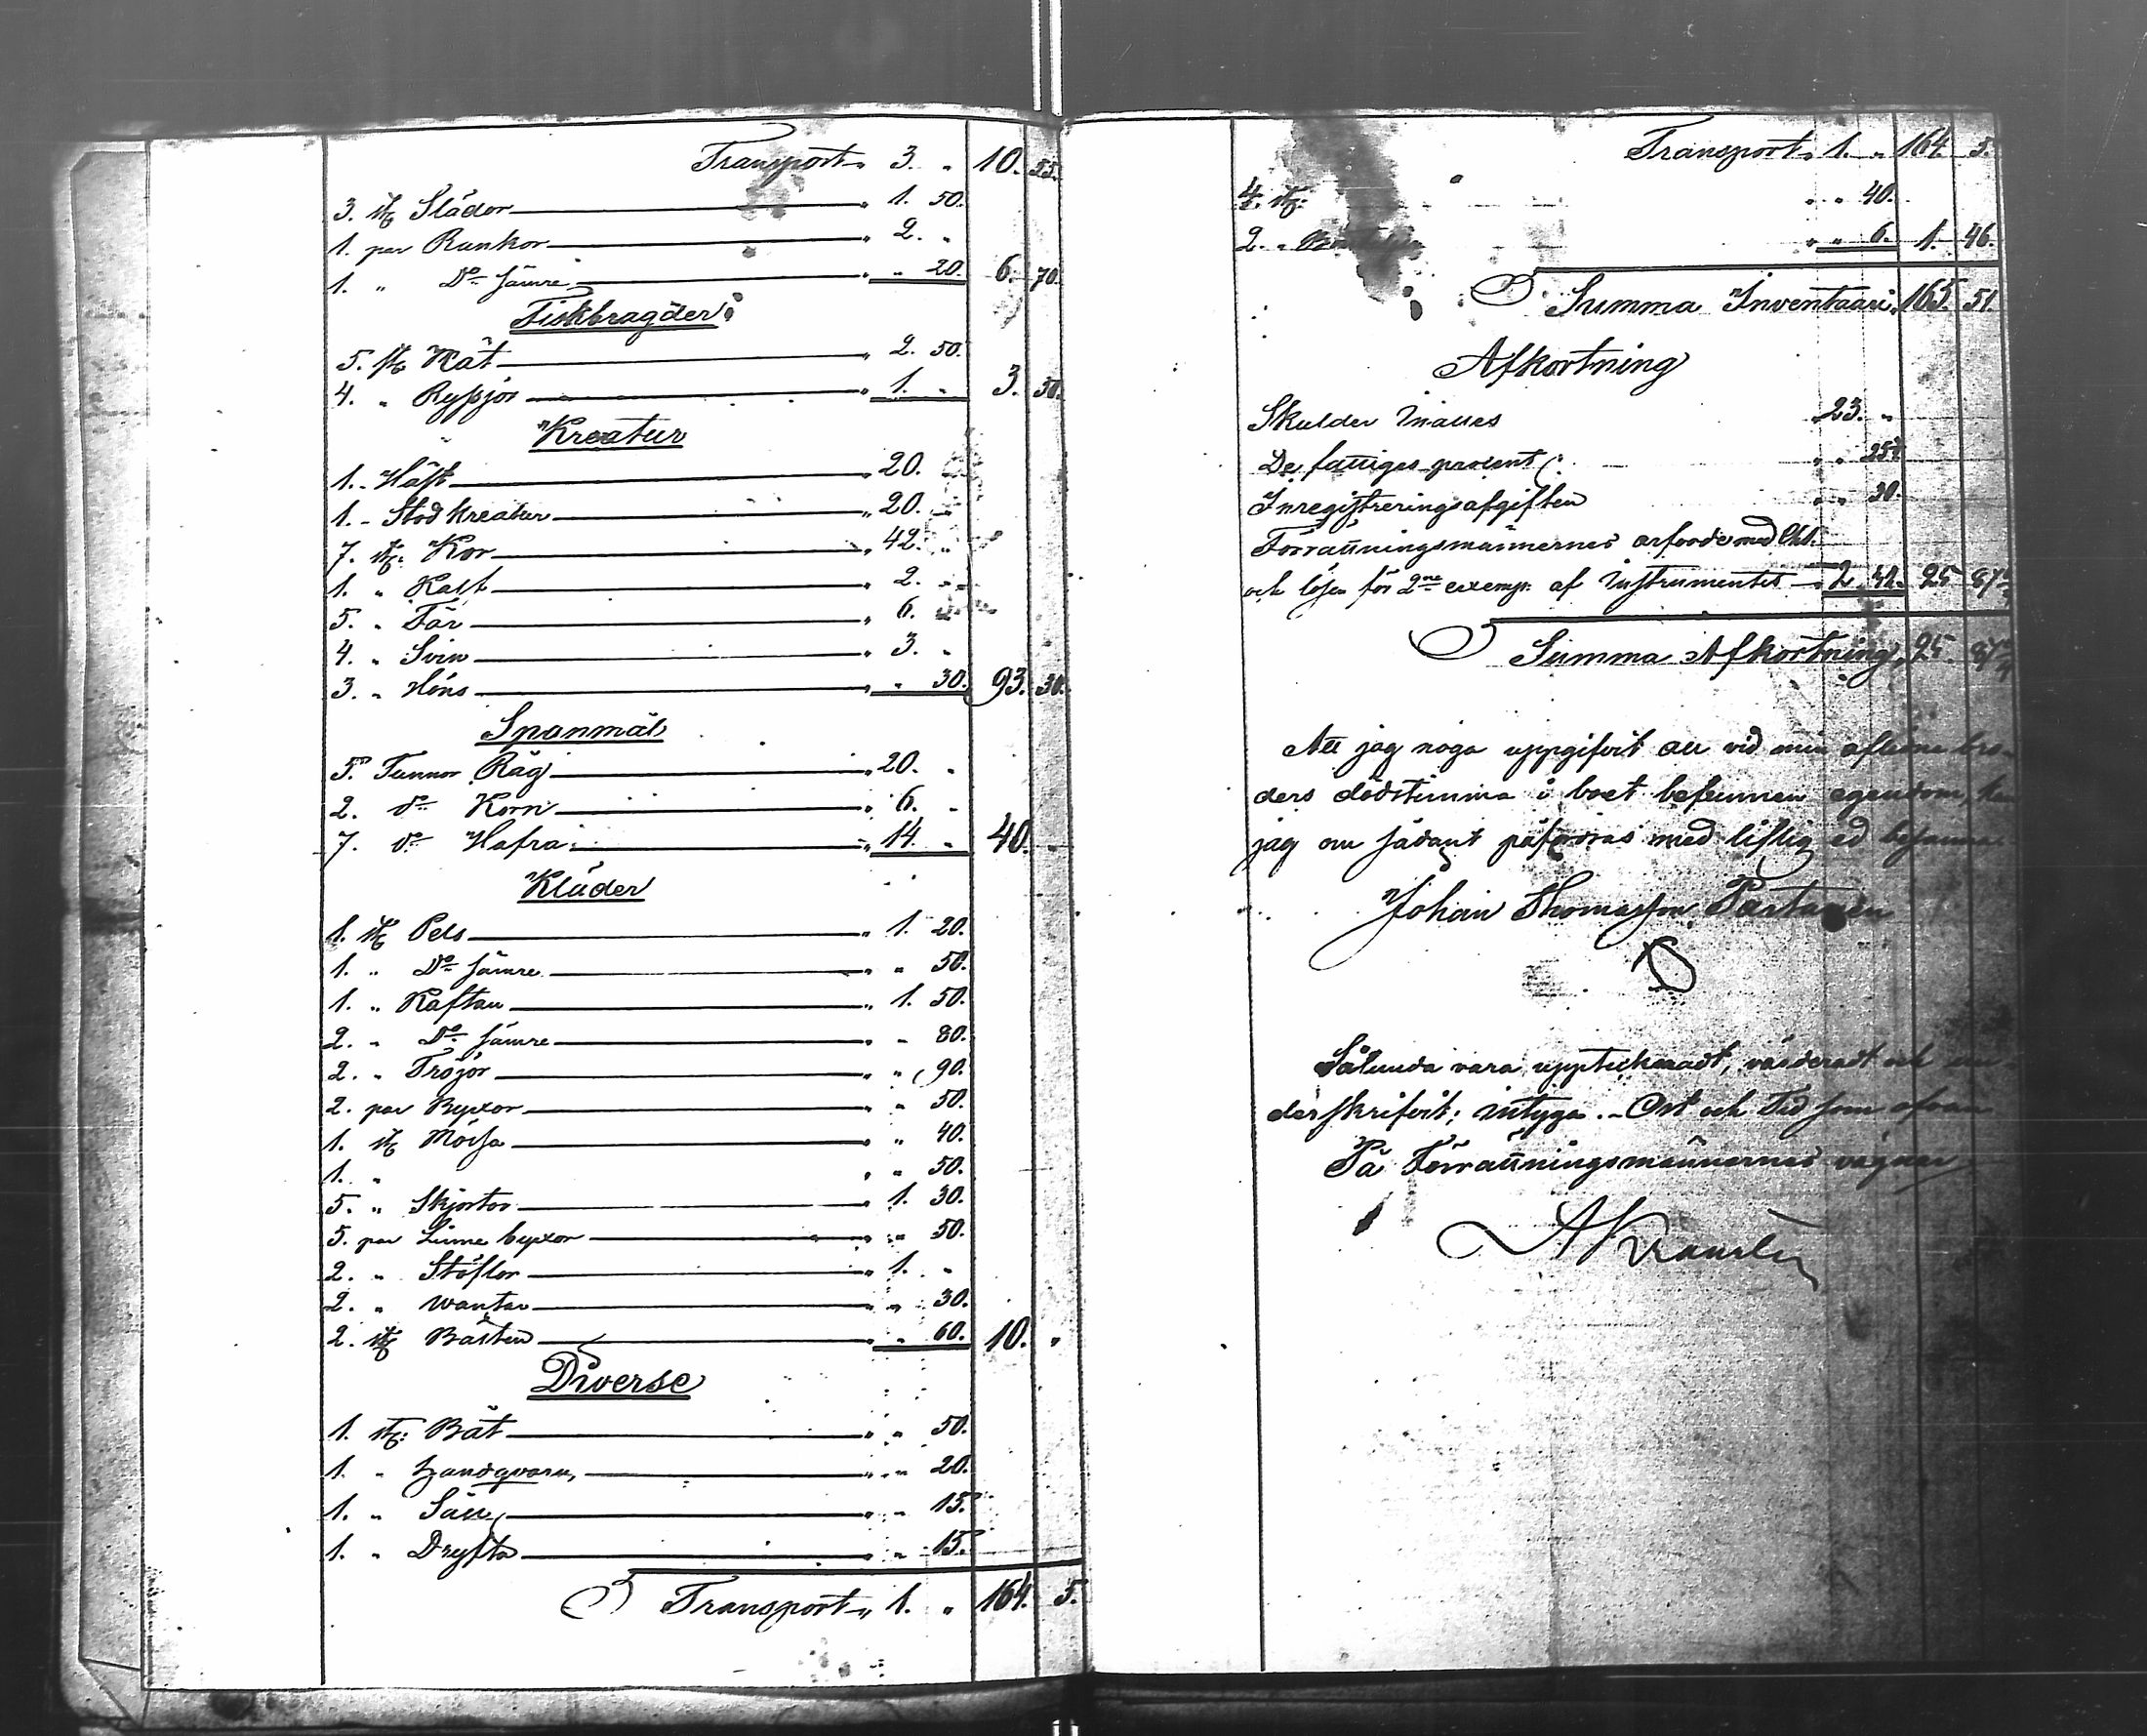 Transport „ 3. „ 10. 55.
3. st. Slädor „ 1. 50.
1. par Rankor „ 2. „
1. „ Do sämre „ „ 20. 6. 70.
Fiskbragder
5. st. Nät „ 2. 50.
4. „ Ryssjor „ 1. „ 3. 50.
Kreatur
1. Häst „ 20.
1. Stod kreatur „ 20. „
7. st. Kor „ 42. „
1. „ Kalf „ 2. „
5. „ Får „ 6. „
4. „ Svin „ 3. „
3. „ Höns „ „ 30. 93. 30.
Spanmål
5. Tunnor Råg „ 20. „
2. do Korn „ 6. „
7. do Hafra „ 14. „ 40. „
Kläder
1. st. Pels „ 1. 20.
1. „ Do sämre „ „ 50.
1. „ Kaftan „ 1. 50.
2. „ Do sämre „ „ 80.
2. „ Tröjor „ „ 90.
2. par Byxor „ „ 50.
1. st. Mössa „ „ 40.
1. „ „ „ 50.
5. „ Skjortor „ 1. 30.
5. par Linne byxor „ „ 50.
2. „ Stöflor „ 1. „
2. „ Wantar „ „ 30.
2. st. Bälten „ „ 60. 10. „
Diverse
1. st. Båt „ „ 50.
1. „ Handqvarn, „ „ 20.
1. „ Såll „ „ 15.
1. „ Dryfta „ „ 15.
Transport „ 1. „ 164. 5.
Transport „ 1. „ 164. 5.
4. st. „ „ 40.
2. „ „ „ 6. 1. 46.
Summa Inventarii 165. 51.
Afkortning
Skulder inalles „ 23. „
De fattiges procent „ „
Inregistreringsafgiften „ „ 30.
Förrättningsmännernes arfvode med
och lösen för 2ne exempr af Instrumentet „ 2. 25
Summa Afkortning, 25.
Att jag noga uppgifvit all vid min aflidne bro-
ders dödstimma i boet befunnen egendom,
jag om sådant påfordras med liflig ed besanna
Johan Thomasson Partanen
Sålunda vara upptecknadt, värderadt och
derskrifvit; intyga. Ort och Tid som ofvan
På Förrättningsmännernes vägnar